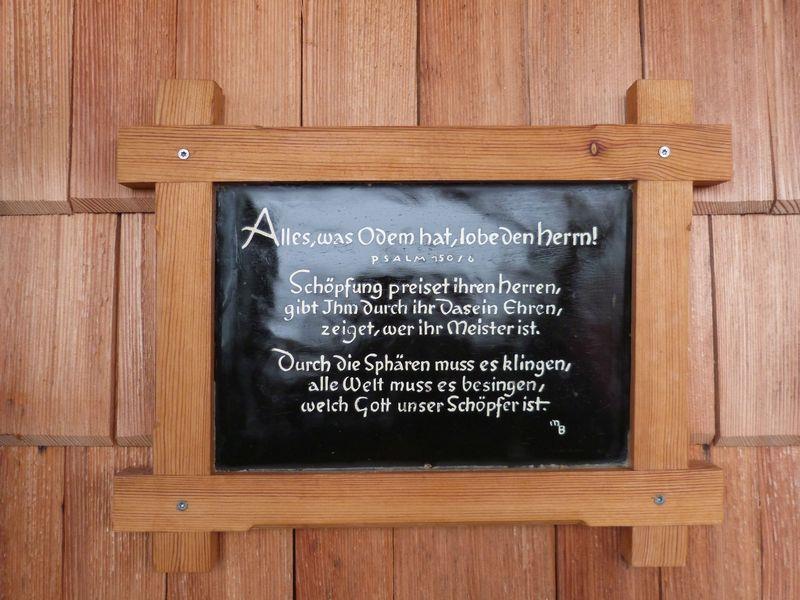 Alles, was Odem hat, lobe den Herrn!
PSALM 150/6
Schöpfung preiset ihren Herren,
gibt Ihm durch ihr Dasein Ehren,
zeiget, wer ihr Meister ist.
Durch die Sphären muss es klingen,
alle Welt muss es besingen,
welch Gott unser Schöpfer ist.
mB